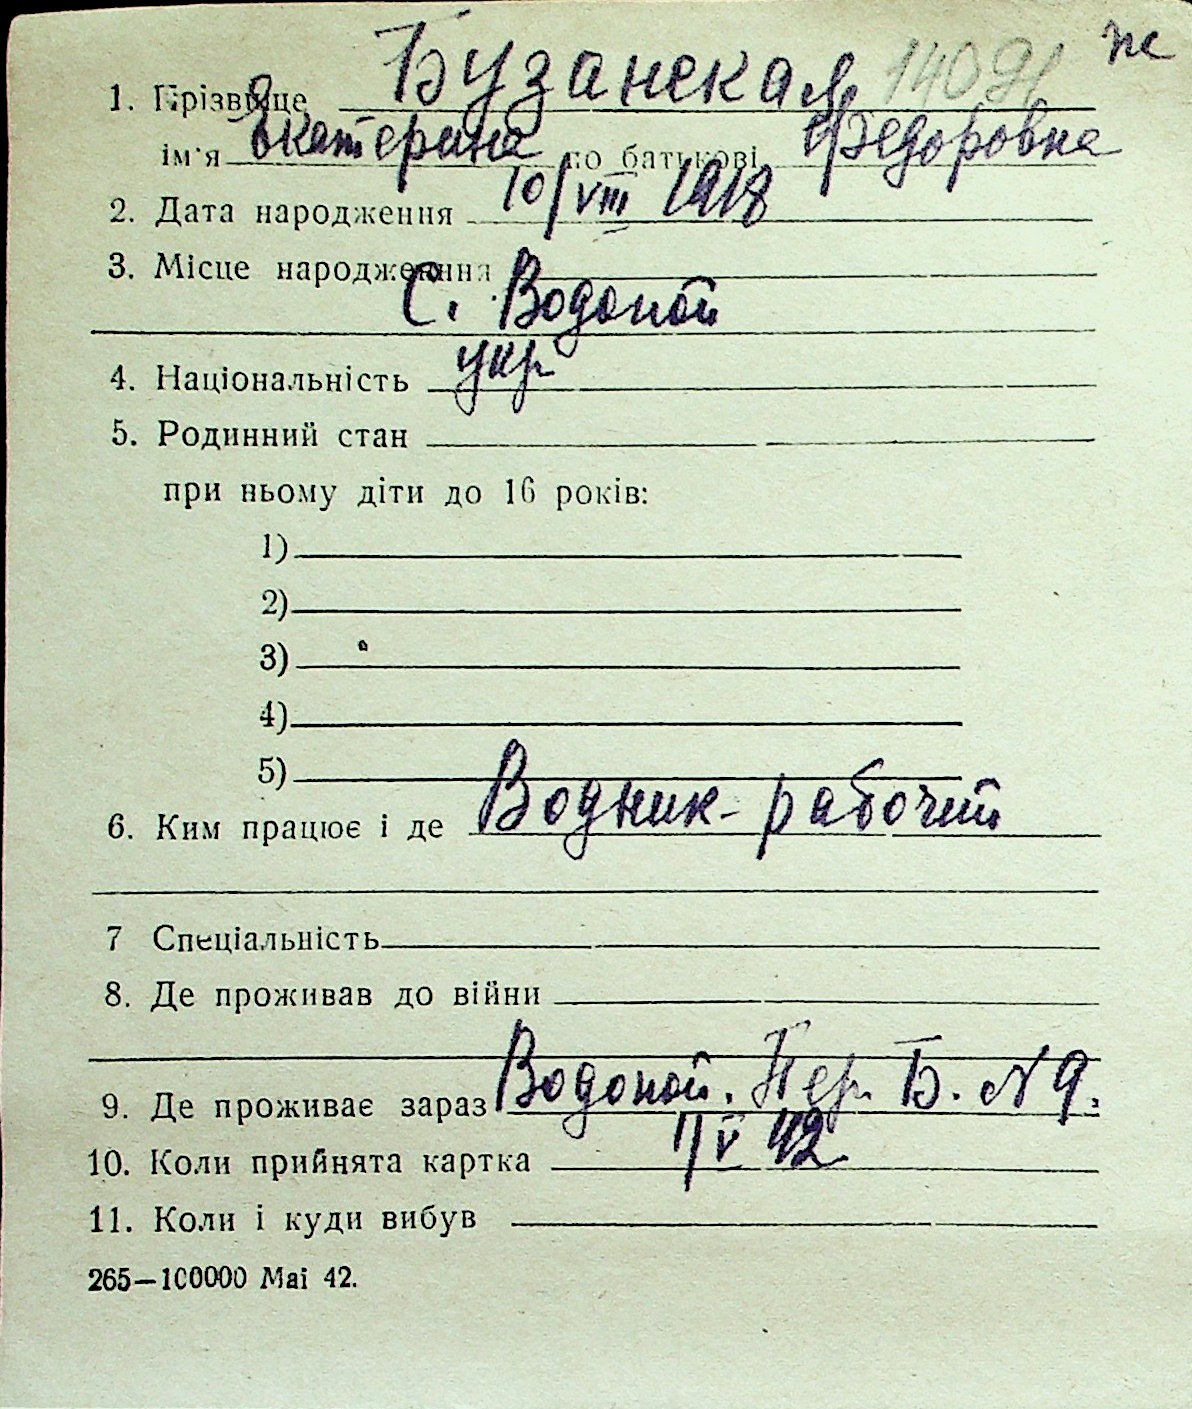 ж
1. Прізвище Бузанская 14091
ім'я Екатерина по батькові Федоровна
2. Дата народження 10/VIII 1918
3. Місце народження
С. Водопой
4. Національність укр
5. Родинний стан
при ньому діти до 16 років:
1)
2)
3)
4)
5)
6. Ким працює і де Водник-рабочий
7 Спеціальність
8. Де проживав до війни
9. Де проживає зараз Водопой. Пер. Б. № 9.
10. Коли прийнята картка 1/V 42
11. Коли і куди вибув
265—100000 Mai 42.